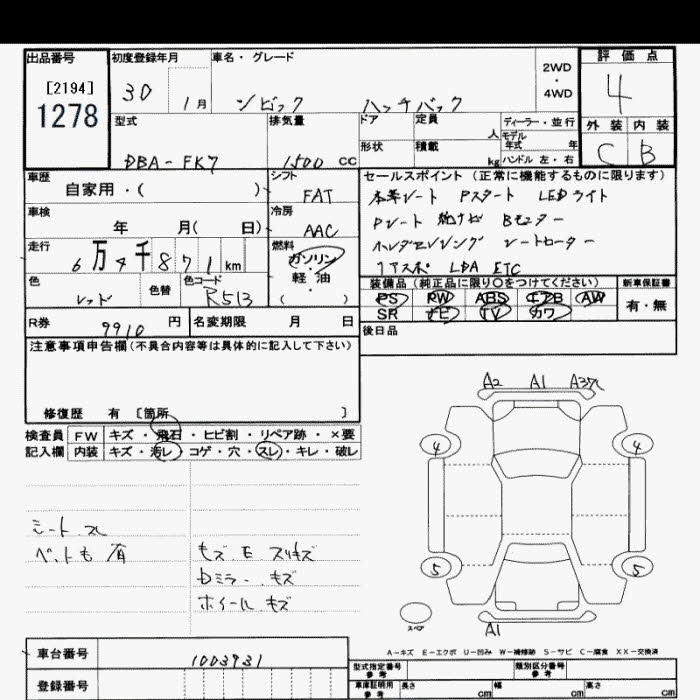 出品番号
[2194]
1278
初度登録年月
30 1月
車名・グレード
シビック ハッチバック
2WD
・
4WD
評価点
4
外装 内装
C B
型式
DBA-FK7
排気量
1500 CC
ドア
定員
人
形状
積載
kg
ディーラー・並行
モデル
年式 年
ハンドル 左・右
車歴
自家用・( )
シフト
FAT
セールスポイント (正常に機能するものに限ります)
本革シート Pスタート LEDライト
Pシート 純ナビ Bモニター
シートヒーター
LDA ETC
車検
年 月( 日)
冷房
AAC
走行
6万4千871km
燃料
ガソリン
・
軽・油
( )
色
レッド
色替
色コード
R513
装備品 (純正品に限り○をつけてください)
PS PW ABS エアB AW
SR ナビ TV カワ
新車保証書
有・無
R券
9910 円
名変期限 月 日
後日品
注意事項申告欄(不具合内容等は具体的に記入して下さい)
修復歴 有 〔箇所 〕
検査員
記入欄
FW キズ・飛石・ヒビ割・リペア跡・×要
内装 キズ・汚レ・コゲ・穴・スレ・キレ・破レ
シート スレ
ペットも 有
キズ E スリキズ
Dミラー キズ
ホイール キズ
A2 A1
4 4
5 5
スペア
A1
A-キズ E-エクボ U-凹み W-補修跡 S-サビ C-腐食 XX-交換済
車台番号
1003931
登録番号
型式指定番号
参考
類別区分番号
参考
車庫証明用
参考
長さ cm
幅 cm
高さ cm